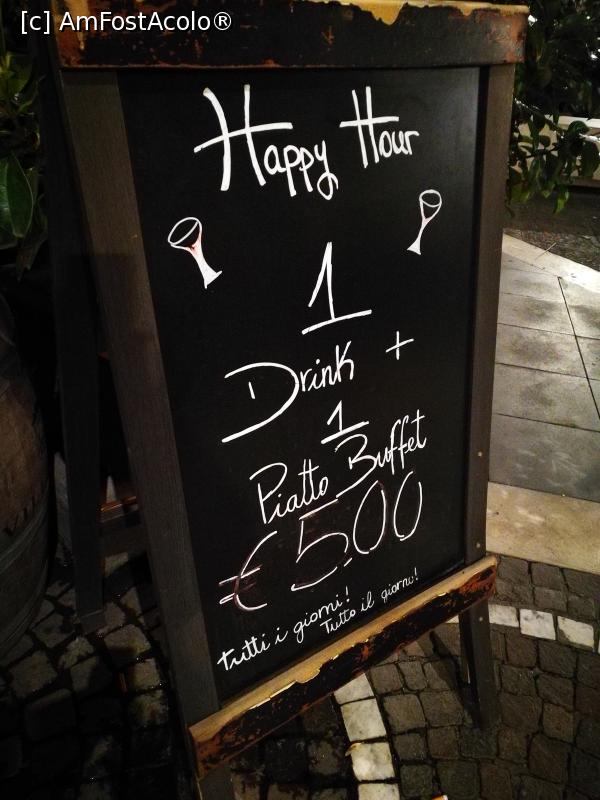 [c] AmFostAcolo®
Happy Hour
1
Drink +
1
Piatto Buffet
€ 5.00
Tutti i giorni!
Tutto il giorno!